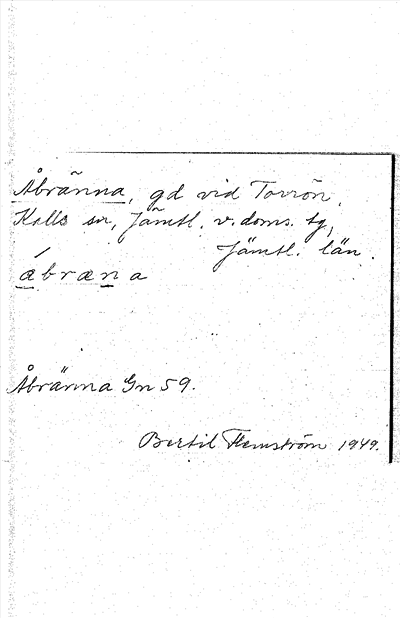 Åbränna, gd vid Torrön,
Kalls sn, Jämtl. v. doms. tg,
Jämtl. län.
åbræna
Åbränna Gn 59.
Bertil Flemström 1949.